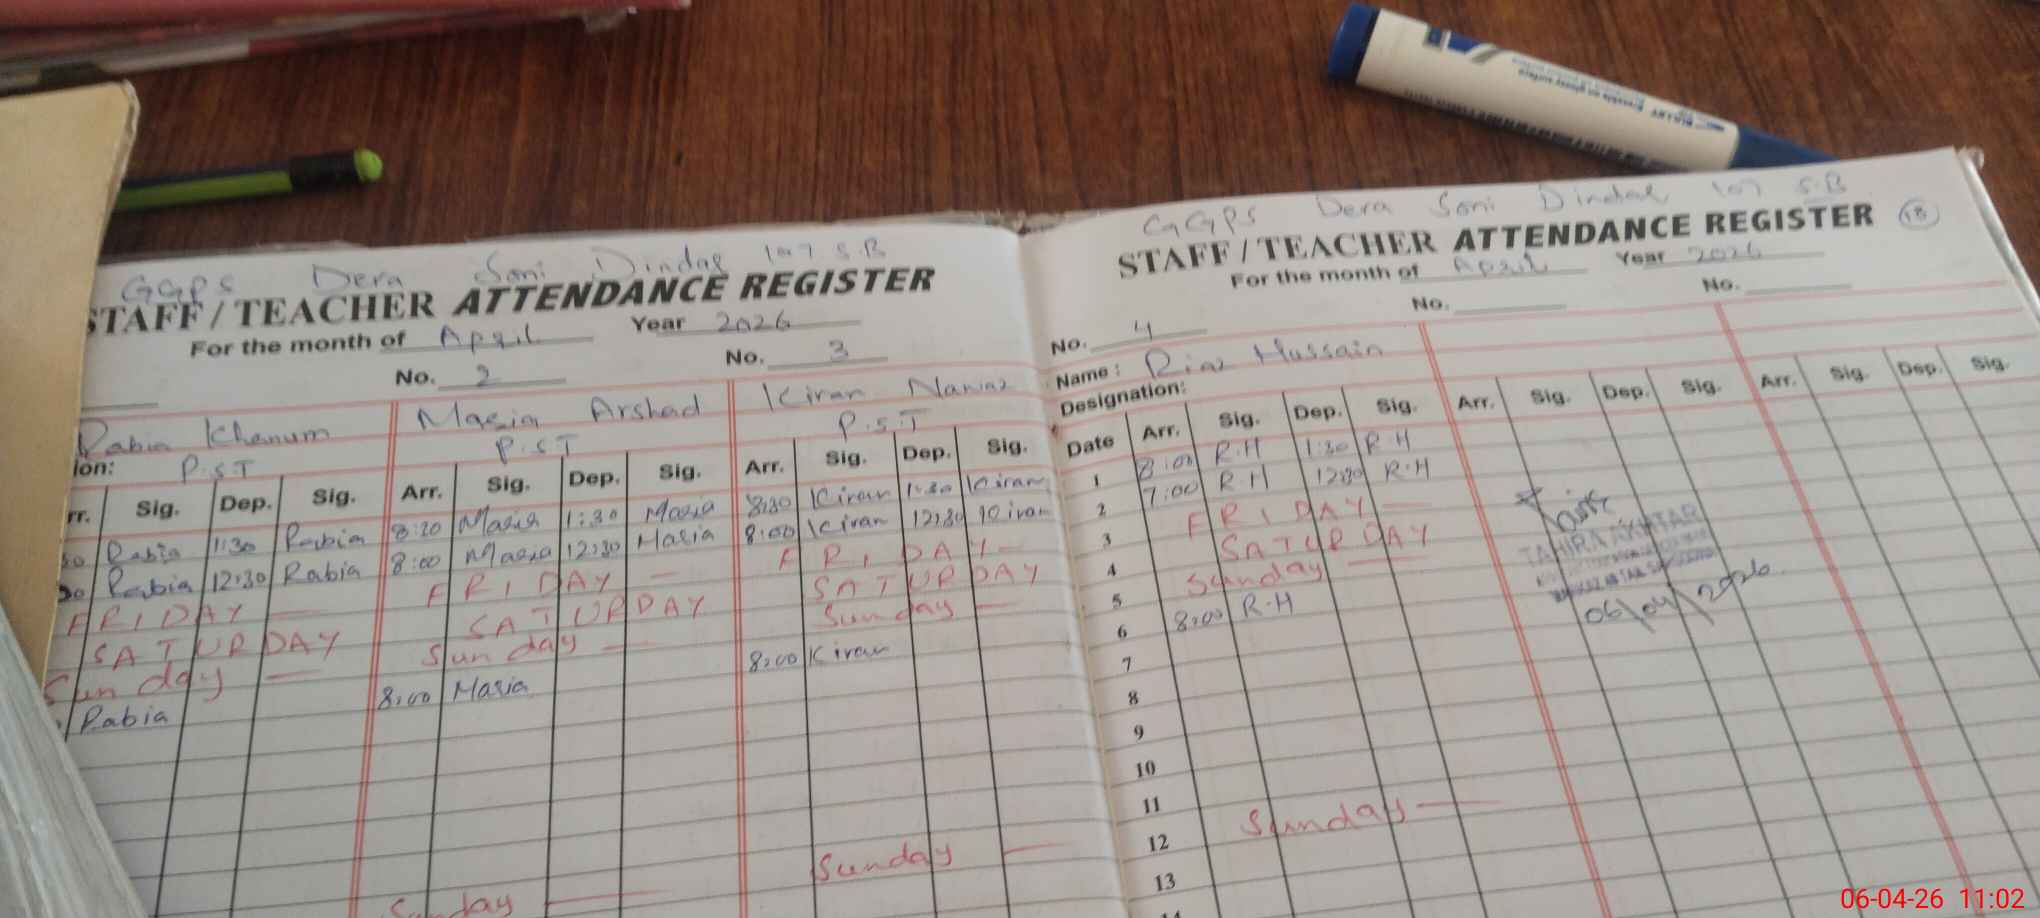 GGPS Dera Soni Dindar 107 S.B
STAFF/TEACHER ATTENDANCE REGISTER
For the month of April Year 2026
No. 2 No. 3
Rabia Khanum Maria Arshad Kiran Nawaz
ion: P.S.T P.S.T P.S.T
rr. Sig. Dep. Sig. Arr. Sig. Dep. Sig. Arr. Sig. Dep. Sig.
30 Rabia 1:30 Rabia 8:20 Maria 1:30 Maria 8:30 Kiran 1:30 Kiran
30 Rabia 12:30 Rabia 8:00 Maria 12:30 Maria 8:00 Kiran 12:30 Kiran
FRIDAY — FRIDAY — FRIDAY —
SATURDAY SATURDAY SATURDAY
Sunday — Sunday — Sunday —
Rabia 8:00 Maria 8:00 Kiran
Sunday — Sunday —
GGPS Dera Soni Dindar 107 S.B
STAFF/TEACHER ATTENDANCE REGISTER 18
For the month of April Year 2026
No. 4 No. No.
Name: Riaz Hussain
Designation:
Date Arr. Sig. Dep. Sig. Arr. Sig. Dep. Sig. Arr. Sig. Dep. Sig.
1 8:00 R.H 1:30 R.H
2 7:00 R.H 12:30 R.H
3 FRIDAY —
4 SATURDAY
5 Sunday —
6 8:00 R.H
7
8
9
10
11
12 Sunday —
13
TAHIRA AKHTAR
06/04/2026
06-04-26 11:02